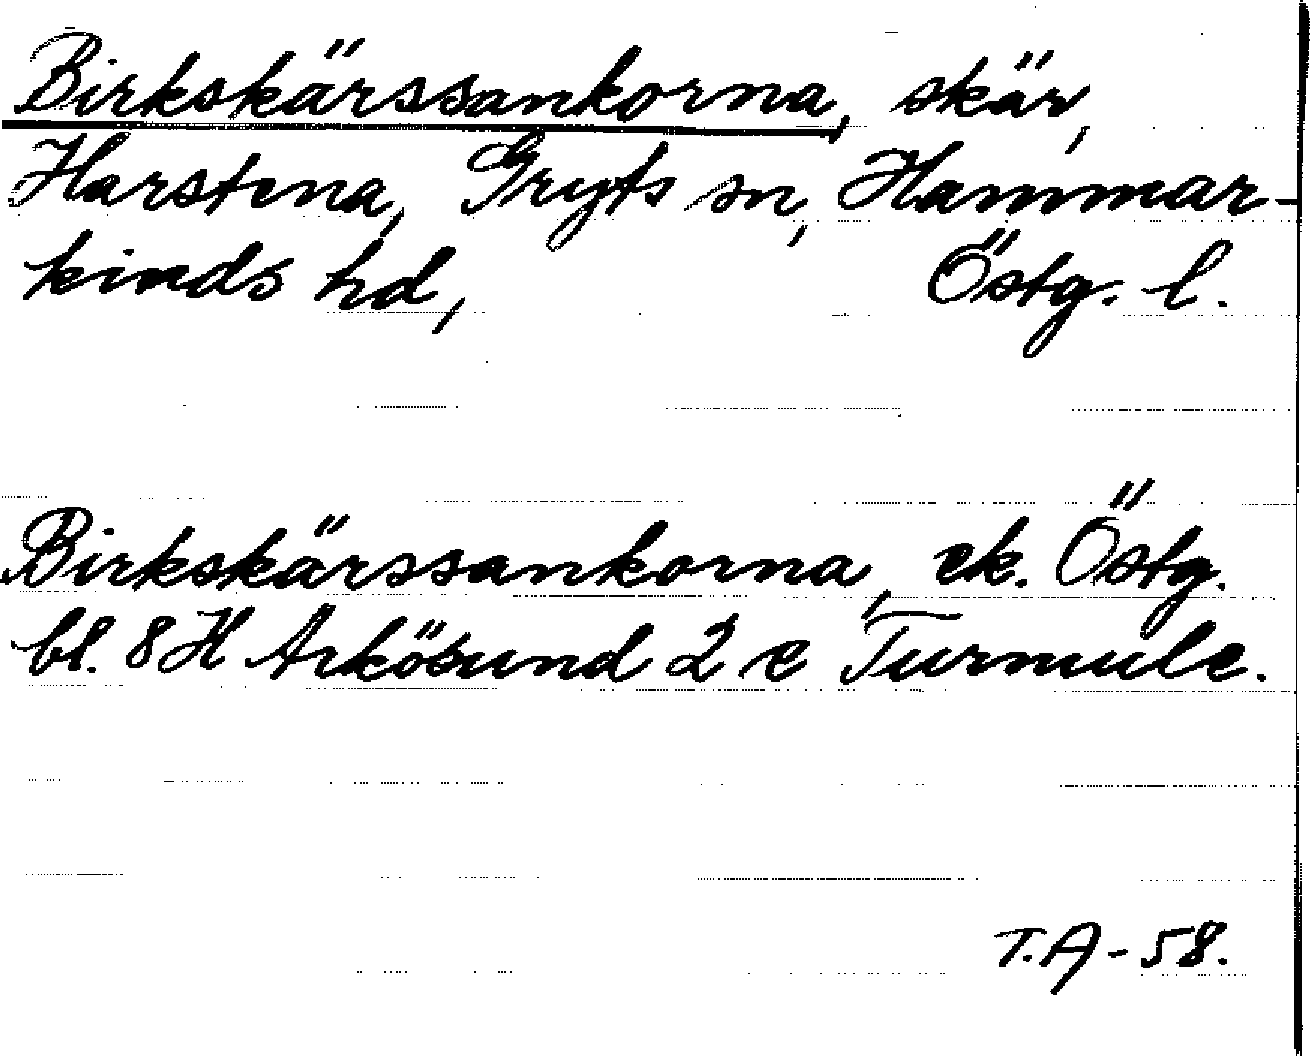 Birkskärssankorna, skär,
Harstena, Gryts sn, Hammar-
kinds hd, Östg. l.
Birkskärssankorna, ek. Östg.
bl. 8 H Arkösund 2 c Turmule.
T.A-58.